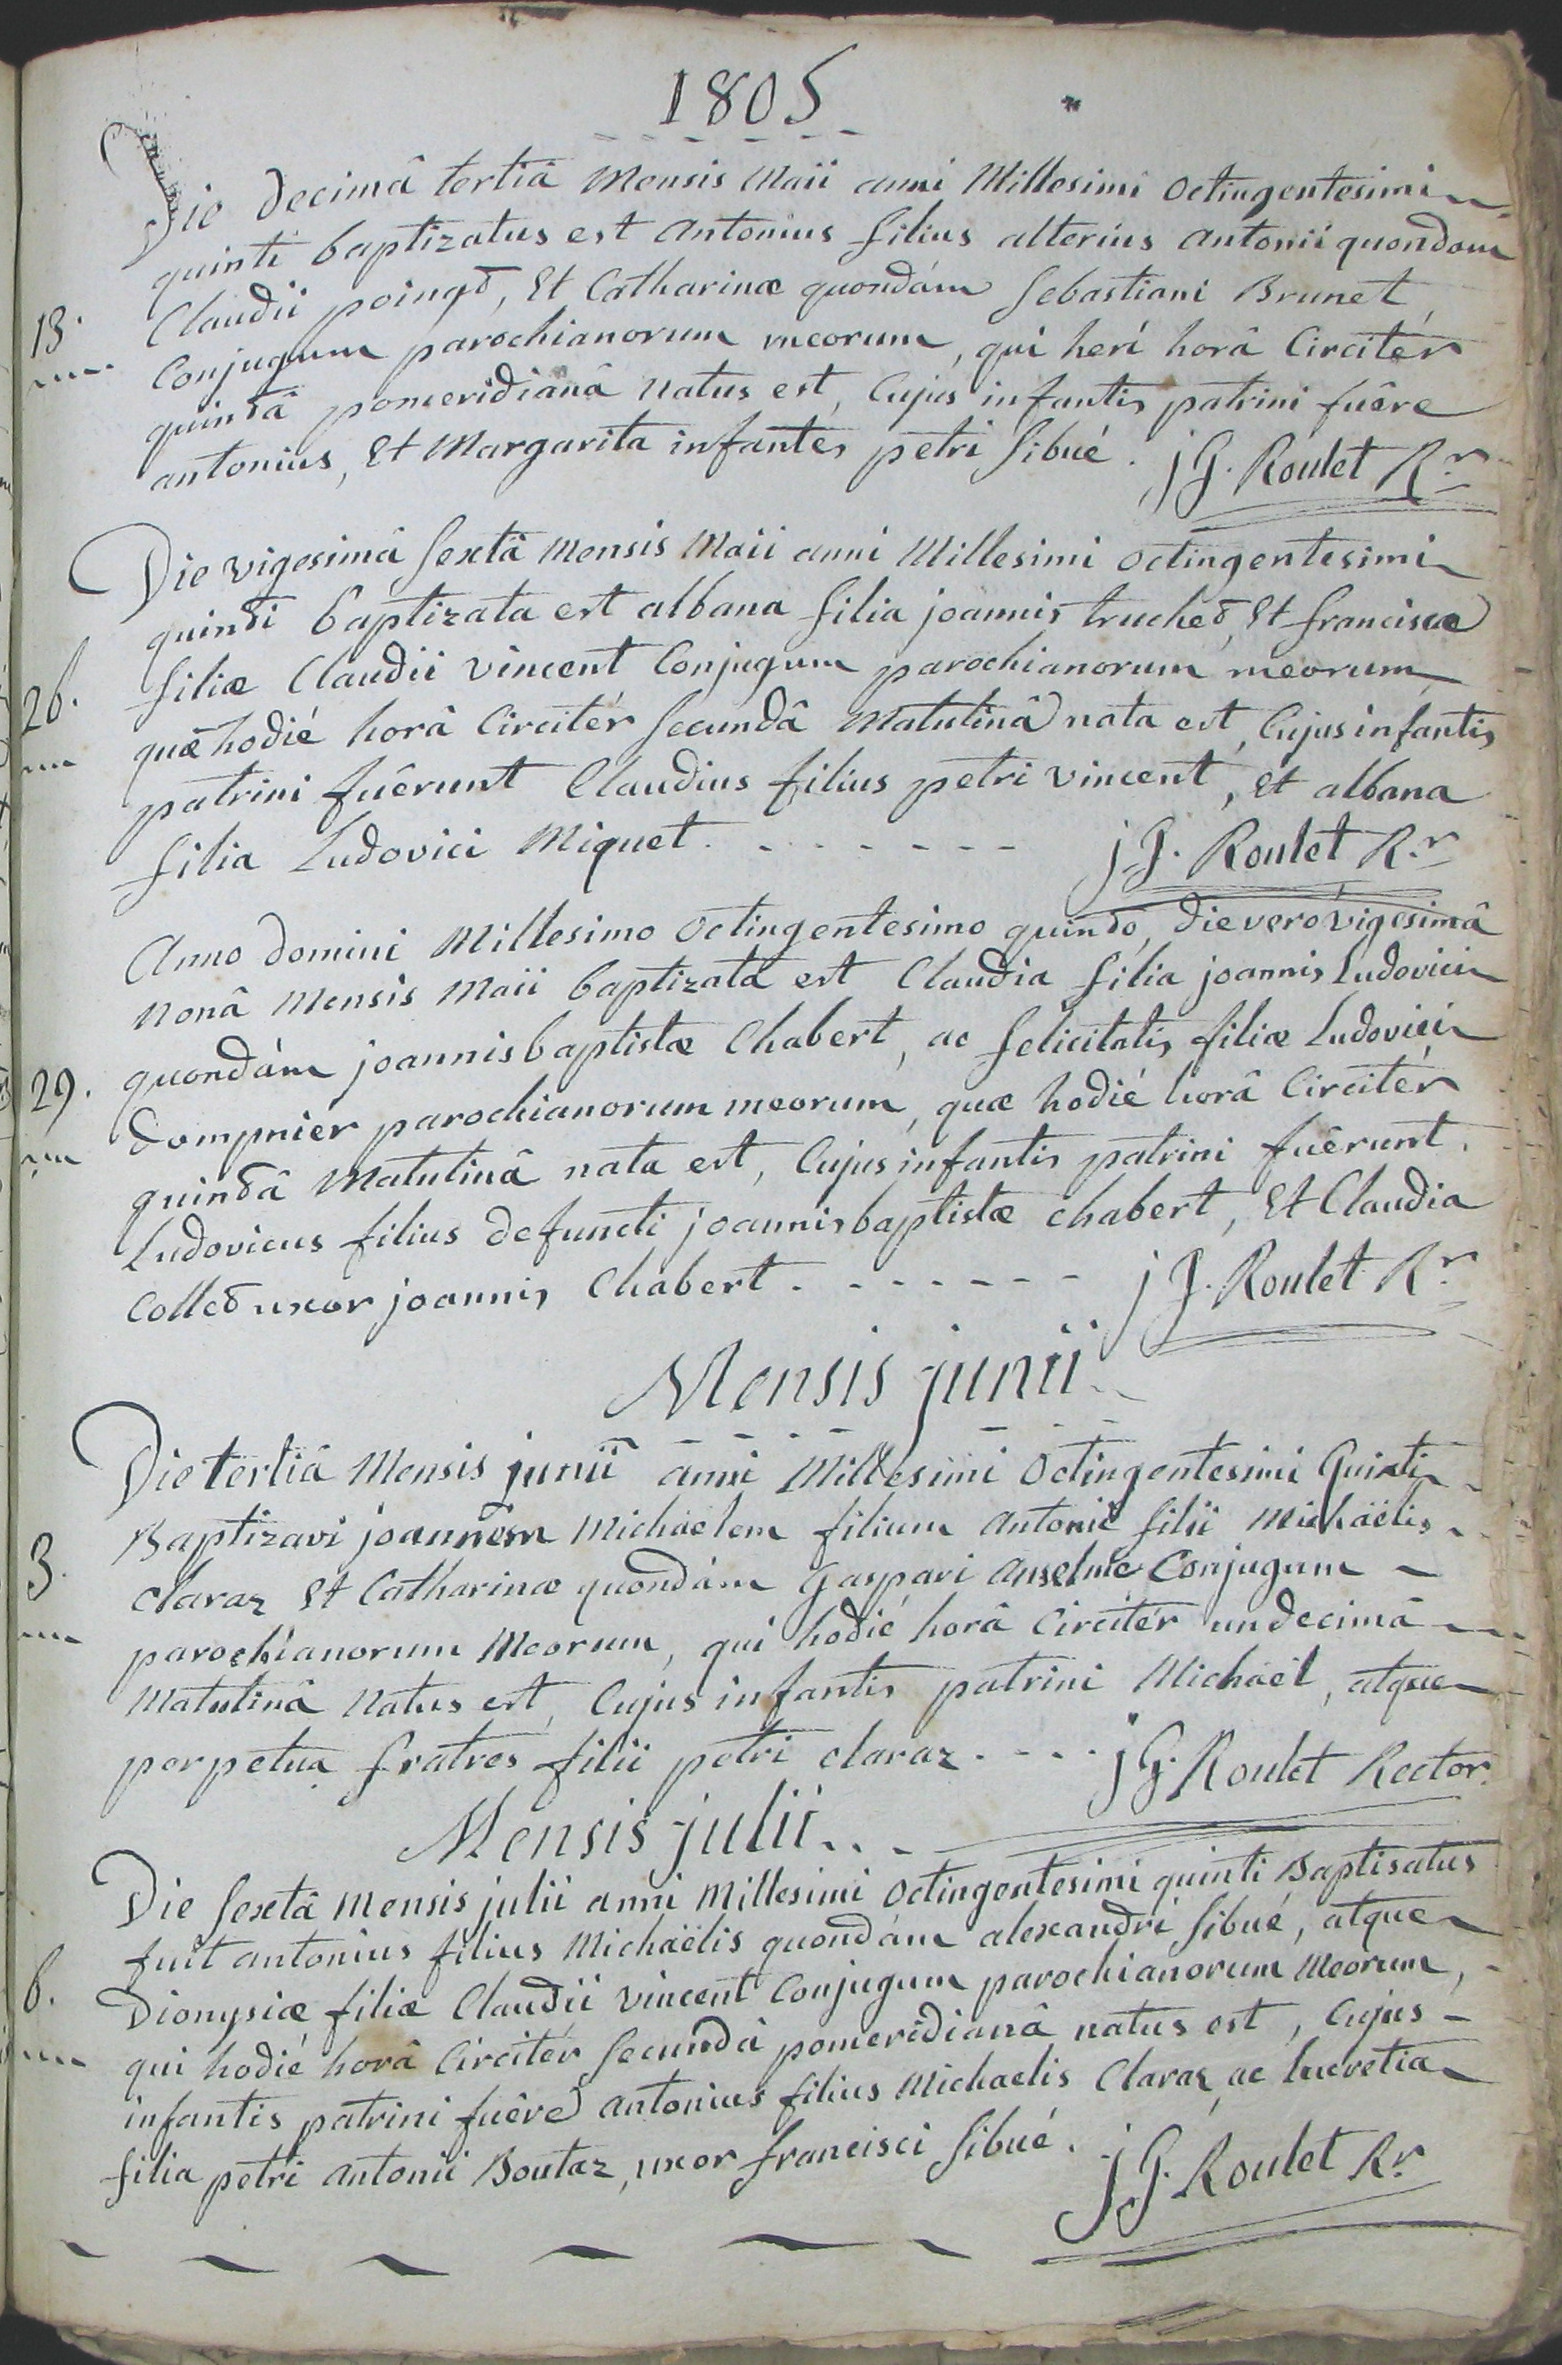 1805
Die decimâ tertiâ mensis Maii anni Millesimi octingentesimi
quinti baptizatus est antonius filius alterius antonii quondam
Claudii poinget, Et Catharinæ quondám Sebastiani Brunet,
13.
Conjugum parochianorum meorum, qui heri horâ Circitér
quintâ pomeridianâ natus est, Cujus infantis patrini fuêre
antonius, Et Margarita infantes petri Sibué. j G. Roulet Rr
Die vigesimâ Sextâ mensis Maii anni Millesimi octingentesimi
quinti baptizata est albana filia joannis truchet, Et franciscæ
26.
filiæ Claudii Vincent Conjugum parochianorum meorum
quæ hodié horâ Circitér Secundâ Matutinâ nata est, Cujus infantis
patrini fuêrunt Claudius filius petri vincent, Et albana
filia Ludovici Miquet. - - - - - - - j G. Roulet R.r
Anno domini Millesimo octingentesimo quinto, die vero vigesimâ
nonâ mensis Maii baptizata est Claudia filia joannis Ludovici
quondám joannisbaptistæ Chabert, ac felicitatis filiæ Ludovici
29.
dompnier parochianorum meorum, quæ hodié horâ Circitér
quintâ Matutinâ nata est, Cujus infantis patrini fuêrunt
Ludovicus filius defuncti joannisbaptistæ chabert, Et Claudia
Collet uxor joannis Chabert. - - - - - - - j G. Roulet Rr
Mensis junii
Die tertiâ Mensis junii anni Millesimi Octingentesimi Quinti
Baptizavi joannem Michäelem filium antonii filii Michäelis
3.
claraz Et Catharinæ quondám gaspari anselme Conjugum
parochianorum Meorum, qui hodié horâ Circitér undecimâ
Matutinâ Natus est, Cujus infantis patrini Michäel, atque
perpetua fratres filii petri claraz. - - - j G. Roulet Rector
Mensis julii. . -
Die Sextâ mensis julii anni Millesimi octingentesimi quinti Baptisatus
fuit antonius filius Michäelis quondám alexandri Sibué, atque
6.
Dionysiæ filiæ Claudii Vincent Conjugum parochianorum Meorum,
qui hodié horâ Circitér Secundâ pomeridianâ natus est, Cujus
infantis patrini fuêre antonius filius Michaelis Claraz, ac lucretia
filia petri antonii Boutaz, uxor francisci Sibué. j G. Roulet Rr